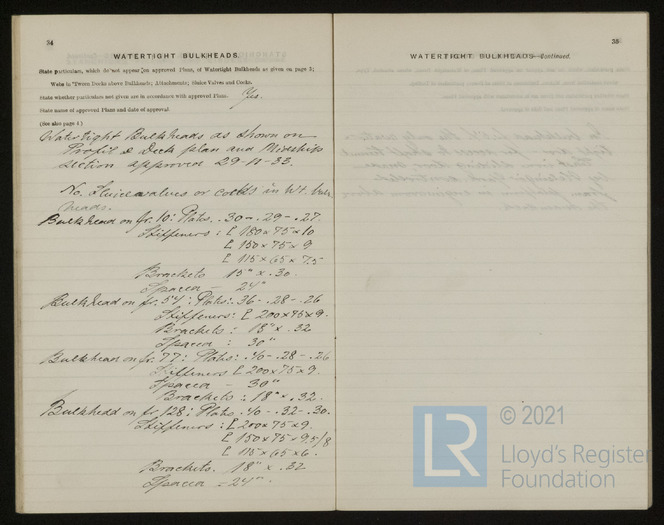 34
WATERTIGHT BULKHEADS.
State particulars, which do not appear on approved Plans, of Watertight Bulkheads as given on page 3;
Webs in 'Tween Decks above Bulkheads; Attachments; Sluice Valves and Cocks.
State whether particulars not given are in accordance with approved Plans. Yes.
State name of approved Plans and date of approval.
(See also page 4.)
Watertight Bulkheads as shown on
Profil & Deck plan and Midship
section approved 29-11-33.
No. Sluice valves or cocks in Wt. bulk
heads.
Bulkhead on fr. 10: Plates. .30 - .29 - .27
Stiffeners: [ 180 x 75 x 10
[ 150 x 75 x 9
[ 115 x 65 x 7.5
Brackets 15" x .30
Spaced - 24"
Bulkhead on fr. 54: Plates: .36 - .28 - .26
Stiffeners: [ 200 x 75 x 9.
Brackets: 18" x .32
Spaced: 30"
Bulkhead on fr. 77: Plates: .40 - .28 - .26
Stiffeners [ 200 x 75 x 9.
Spaced - 30"
Brackets: 18" x .32.
Bulkhead on fr. 128: Plates .40 - .32 - .30.
Stiffeners: [ 200 x 75 x 9.
[ 150 x 75 x 9.5/8
[ 115 x 65 x 6.
Brackets. 18" x .32
Spaced - 24".
35
WATERTIGHT BULKHEADS—Continued.
© 2021
LR
Lloyd's Register
Foundation